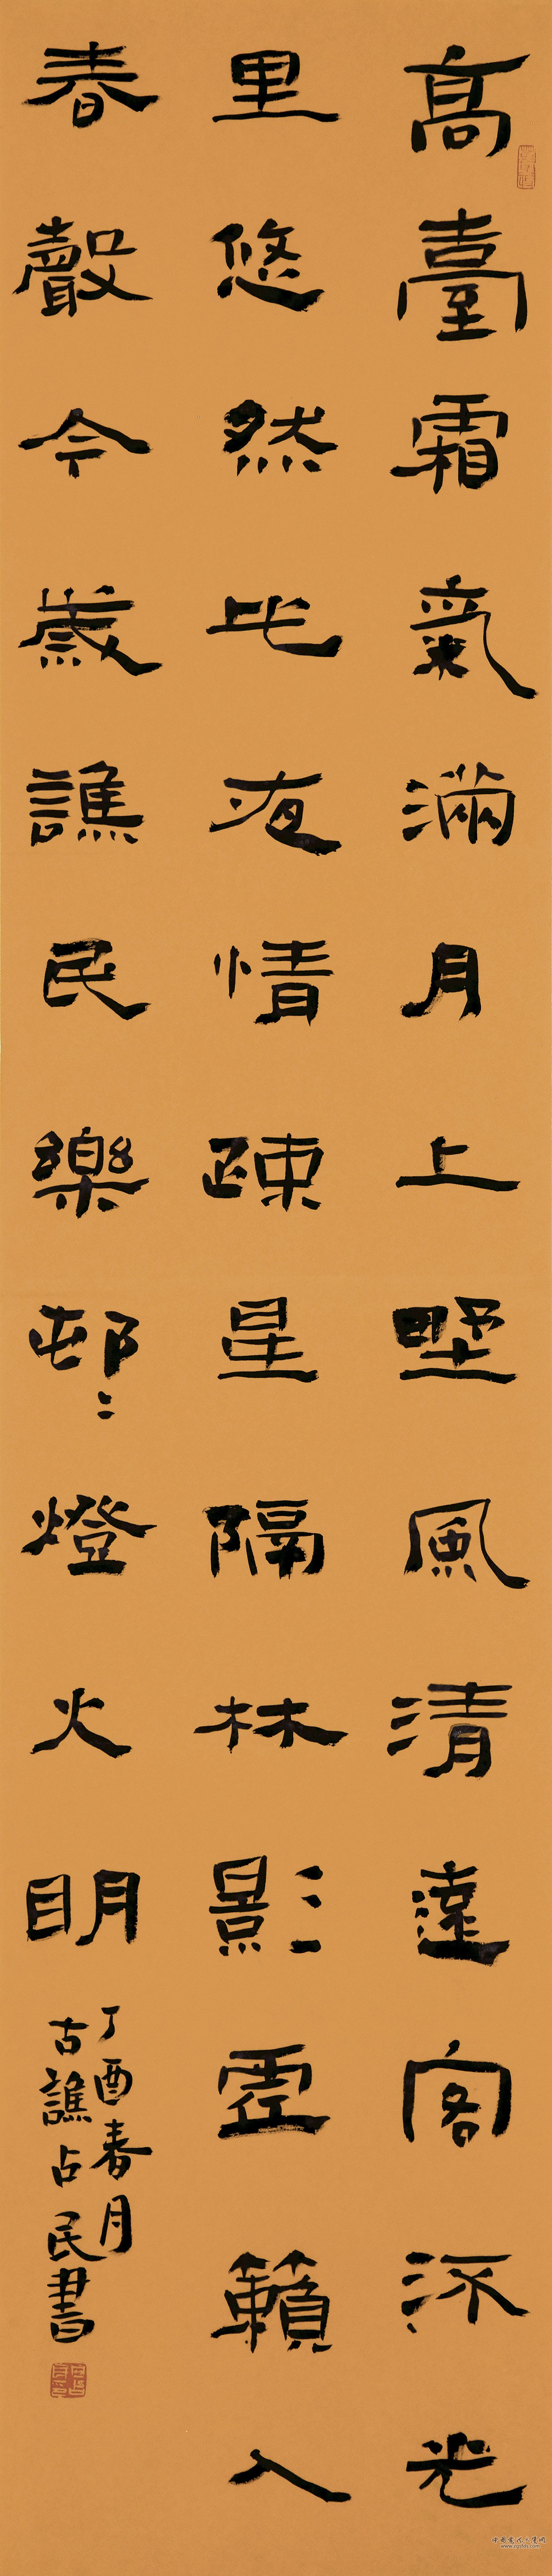 高臺霜氣滿月上墅風清遠客沶光
里悠然此夜情疎星隔林影虛籟入
春聲今歲譙民樂邨〻燈火明
丁酉春月
古譙占民書